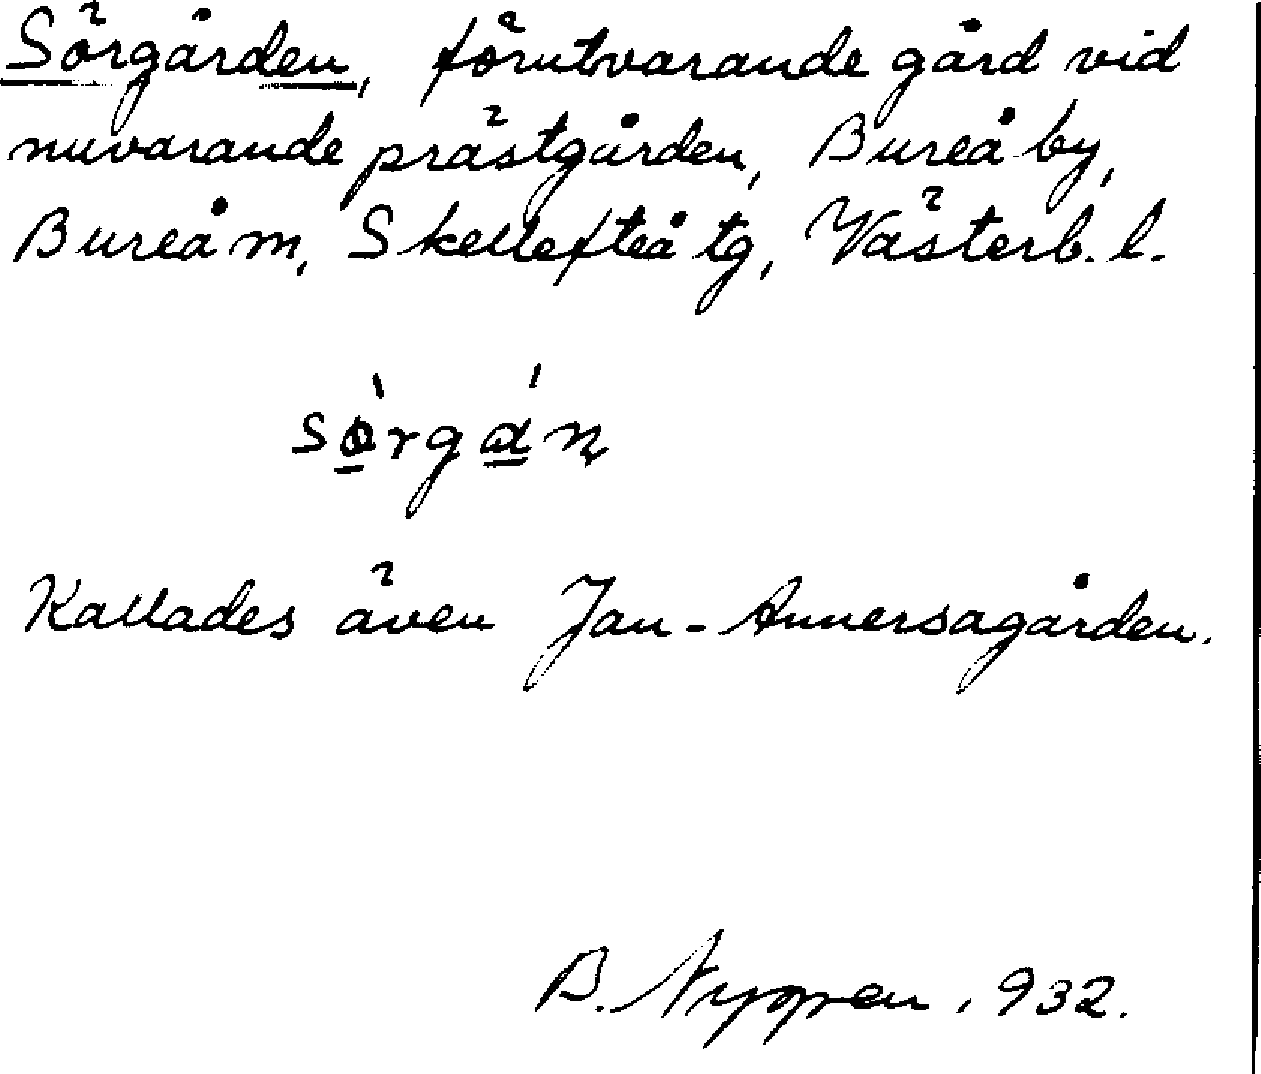 Sörgården, förutvarande gård vid
nuvarande prästgården, Bureå by,
Bureå m, Skellefteå tg, Västerb. l.
Kallades även Jan-Annersagården.
B. 932.